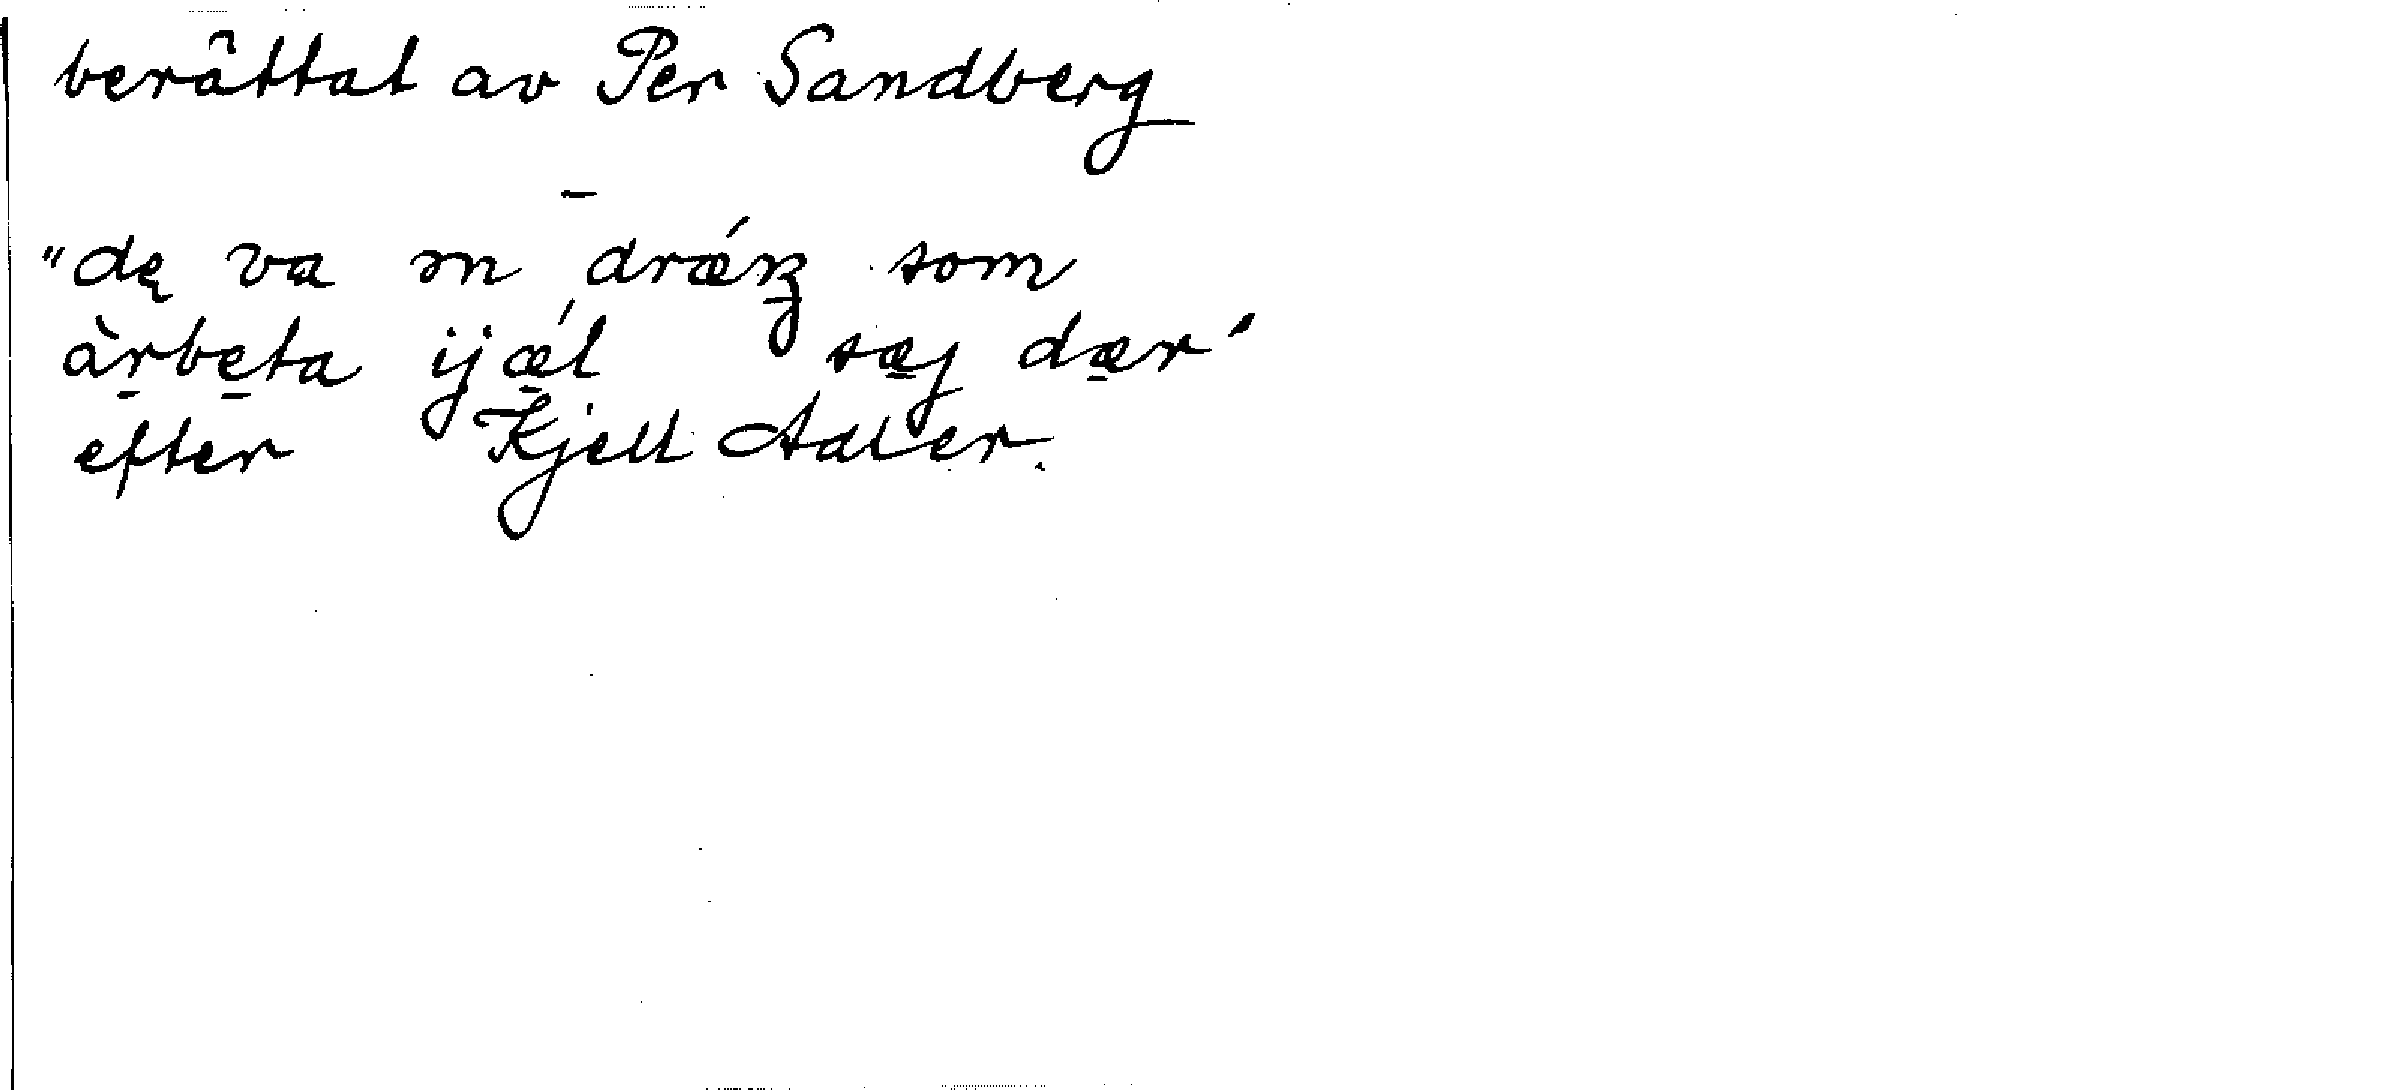 berättat av Per Sandberg
–
"dę va ən drǽŋ som
àrbeta ijǽl sæj dær"
efter Kjell Adler.